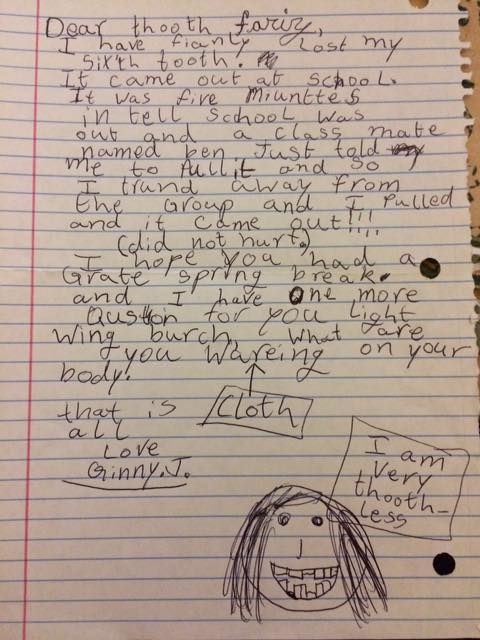 Dear thooth fariy,
I have fianly lost my
sixth tooth!
It came out at school.
It was five miunttes
in tell school was
out and a class mate
named ben Just told
me to pull it and so
I trund away from
the Group and I pulled
and it came out!!!!
(did not hurt.)
I hope you had a
Grate spring break.
and I have One more
Quston for you Light
wing burch, what are
you wareing on your
body!
Cloth
that is
all
Love
Ginny.J.
I am
very
thooth-
less